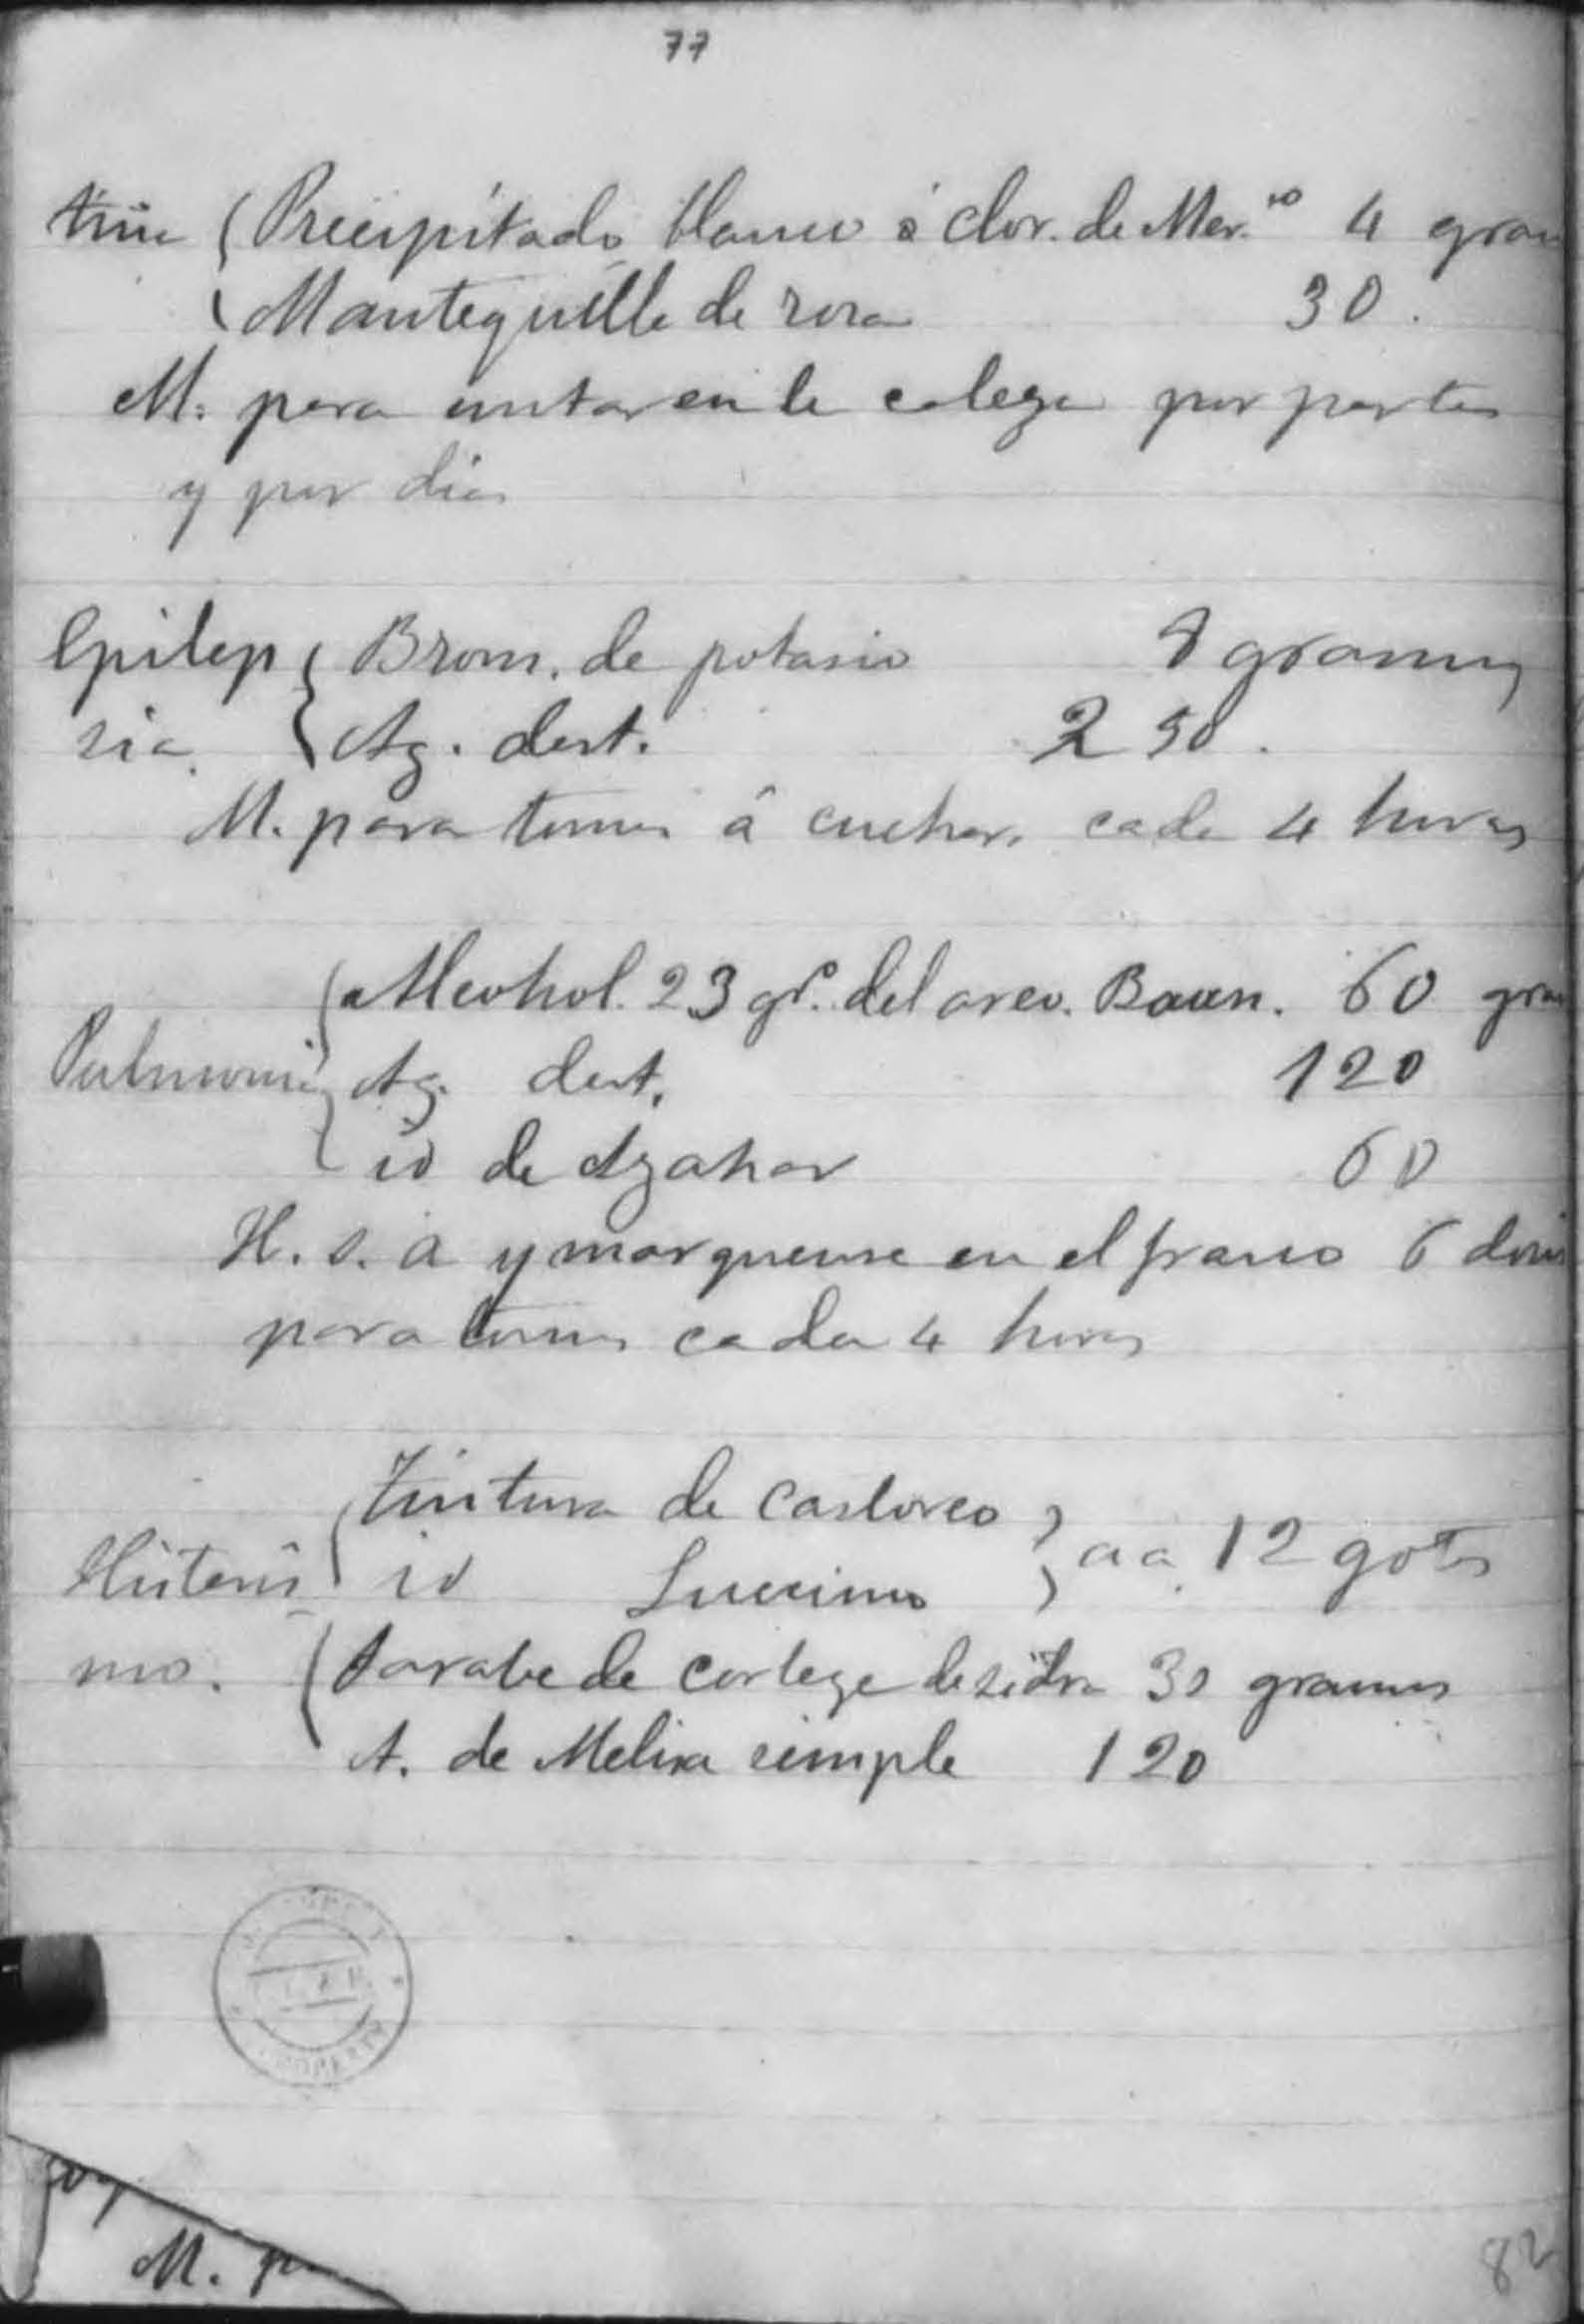 77
tiña Precipitado blanco ó clor. de Mer.io 4 gram
Mantequilla de rosa 30.
M. para untar en la cabeza por partes
y por dias
Epilep Brom. de potasio 8 gramos
sia. Ag. dest. 250.
M. para tomar á cuchar. cada 4 horas
Alcohol. 23 gr.o del areo. Baun. 60 gram
Pulmonia Ag. dest. 120
id de Azahar 60
H. s. a y marquense en el frasco 6 dosis
para tomar cada 4 horas
Tintura de castoreo
Histeris id Succino aa. 12 gotas
mo. Jarabe de corteza de sidra 30 gramos
A. de Melisa simple 120
M. p
82